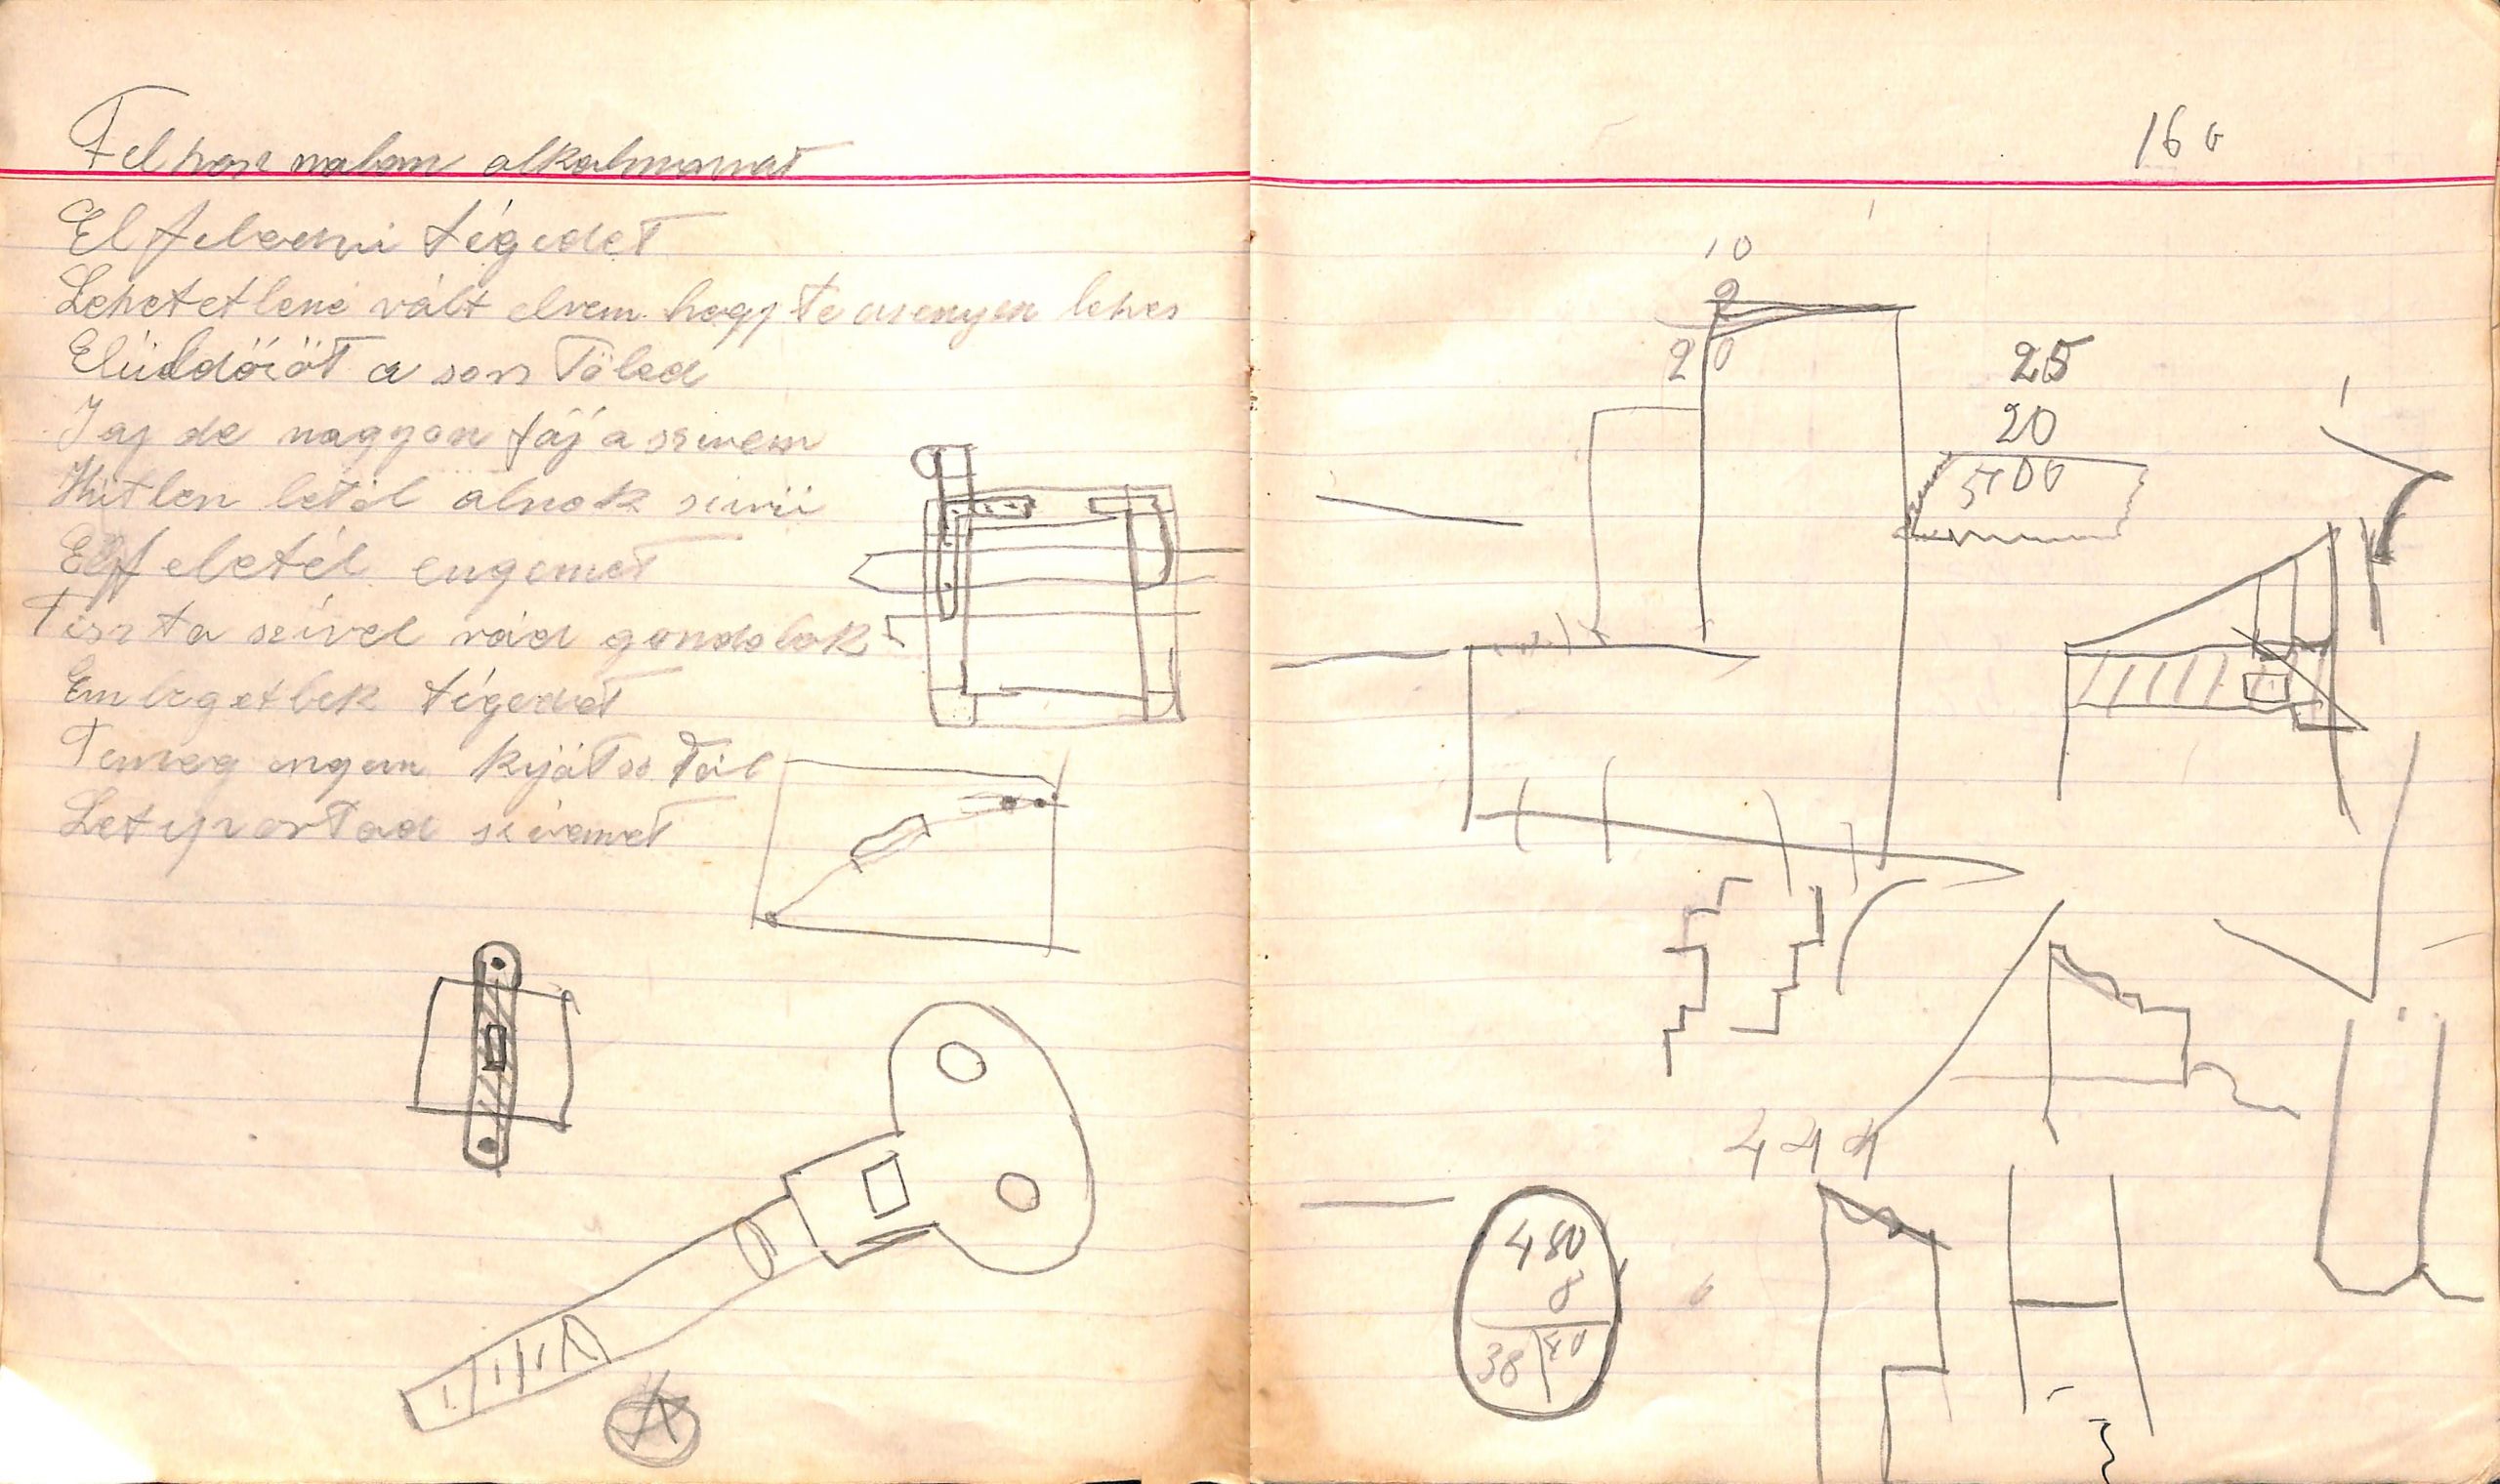 Fel hasz nalom alkalmamat
El feledni tégedet
Lehetetlené vált elvem hogy te asenyém lehes
Elüldözöt a sors Töled
Jaj de nagyon fáj a szivem
Hütlen letél alnok szivü
Elf eletél engemet
Tiszta szivel rád gondolok
Emlegetlek tégedet
Temeg engem kijátszo Tál
Letiportad szivemet
16 0
10
2
20
25
20
500
444
480
8
38 40